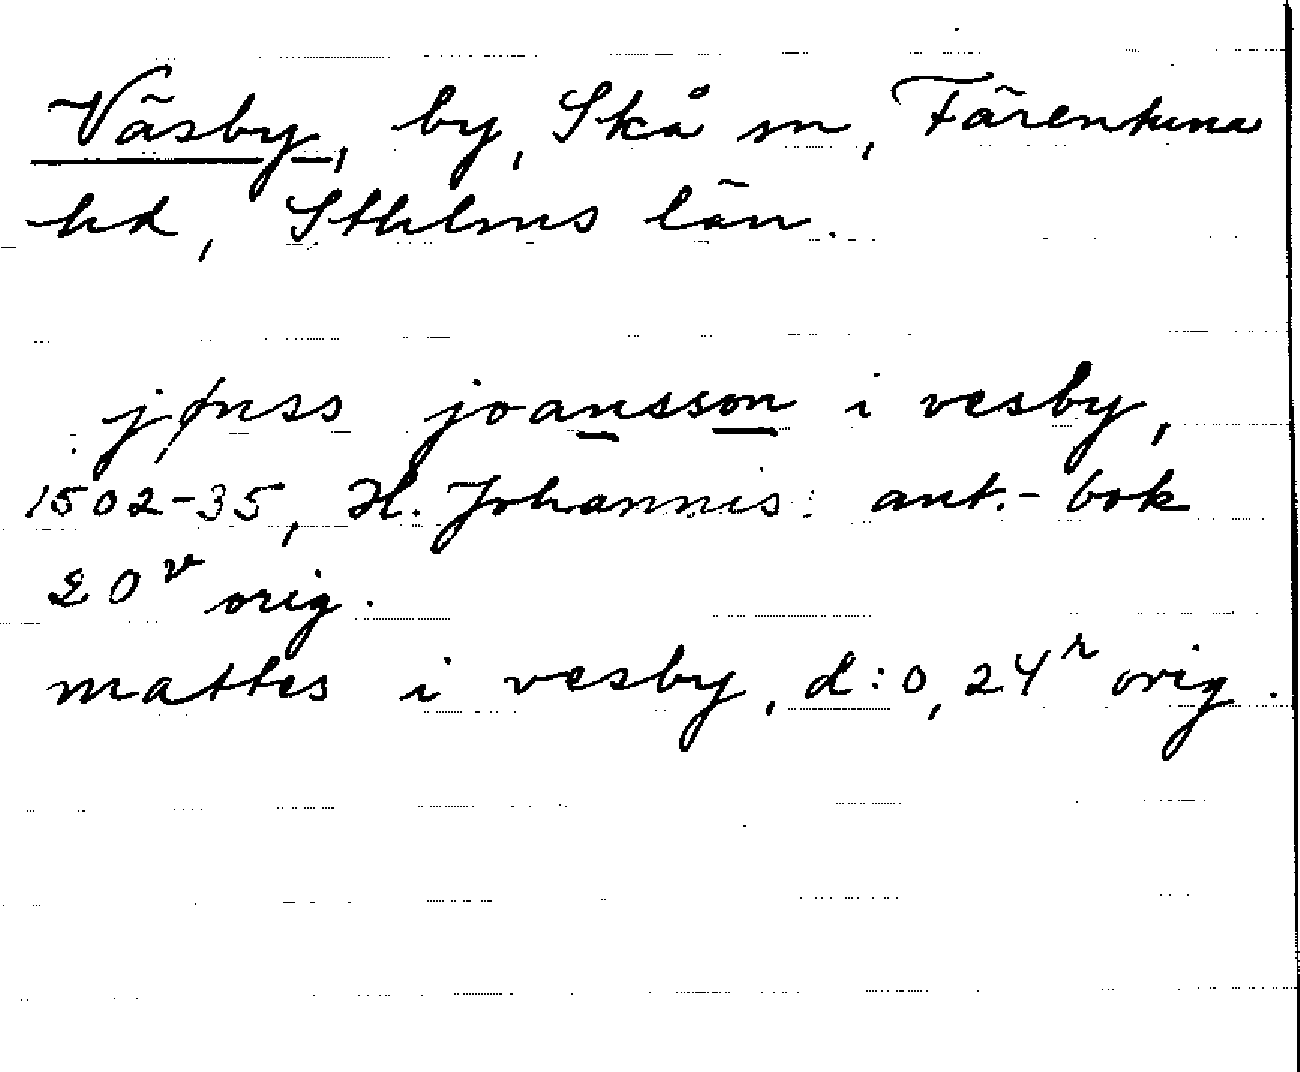 Väsby, by, Skå sn, Färentuna
hd, Sthlms län.
jønss joansson i vesby,
1502-35, H. Johannis: ant.-bok
20v orig.
mattes i vesby, d:o, 24r orig.